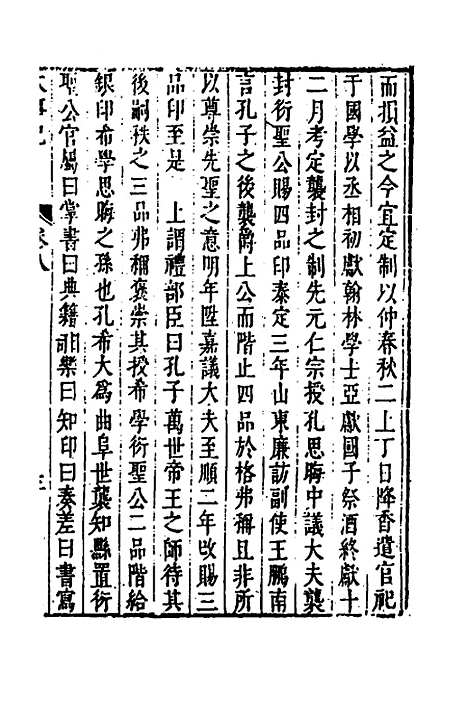 而損益之今宜定制以仲春秋二上丁日降香遣官祀
于國學以丞相初獻翰林學士亞獻國子祭酒終獻十
二月考定襲封之制先元仁宗授孔思晦中議大夫襲
封衍聖公賜四品印泰定三年山東廉訪副使王鵬南
言孔子之後襲爵上公而階止四品於格弗稱且非所
以尊崇先聖之意明年陞嘉議大夫至順二年改賜三
品印至是　上謂禮部臣曰孔子萬世帝王之師待其
後嗣秩之三品弗稱褒崇其授希學衍聖公二品階給
銀印希學思晦之孫也孔希大爲曲阜世襲知縣置衍
聖公官屬曰掌書曰典籍司樂曰知印曰奏差曰書寫
卷八
三